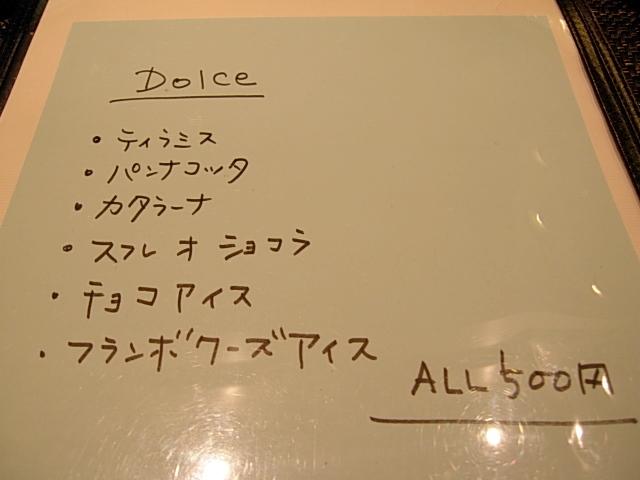 Dolce
・ティラミス
・パンナコッタ
・カタラーナ
・スフレ オ ショコラ
・チョコアイス
・フランボワーズアイス
ALL 500円